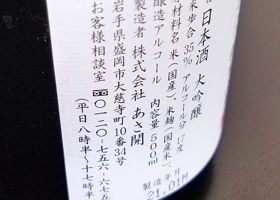 日本酒 大吟醸
精米歩合 35% アルコール分 17度
原材料名 米(国産)、米麹(国産米)、
醸造アルコール 内容量 500ml
製造者 株式会社 あさ開
岩手県盛岡市大慈寺町10番34号
お客様相談室 0120-756-675
(平日八時半~十七時半
製造年月
21.01